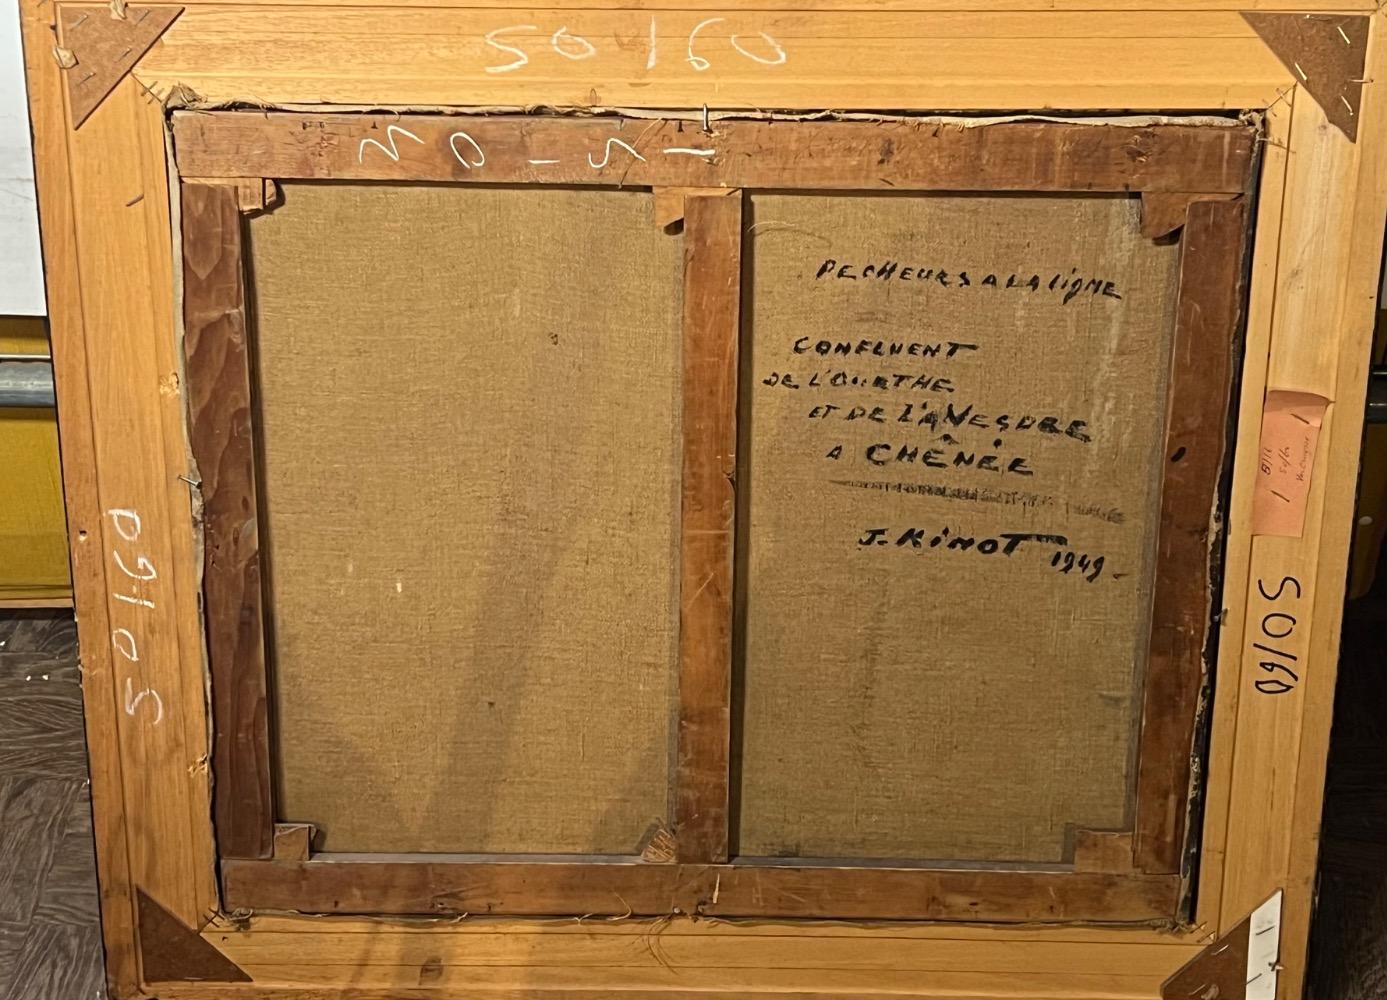 50160
MO-51
PECHEURS A LA LIGNE
CONFLUENT
DE L'OURTHE
ET DE LA VESDRE
A CHÊNÉE
J. KINOT 1949-
50160
50/60
50/60